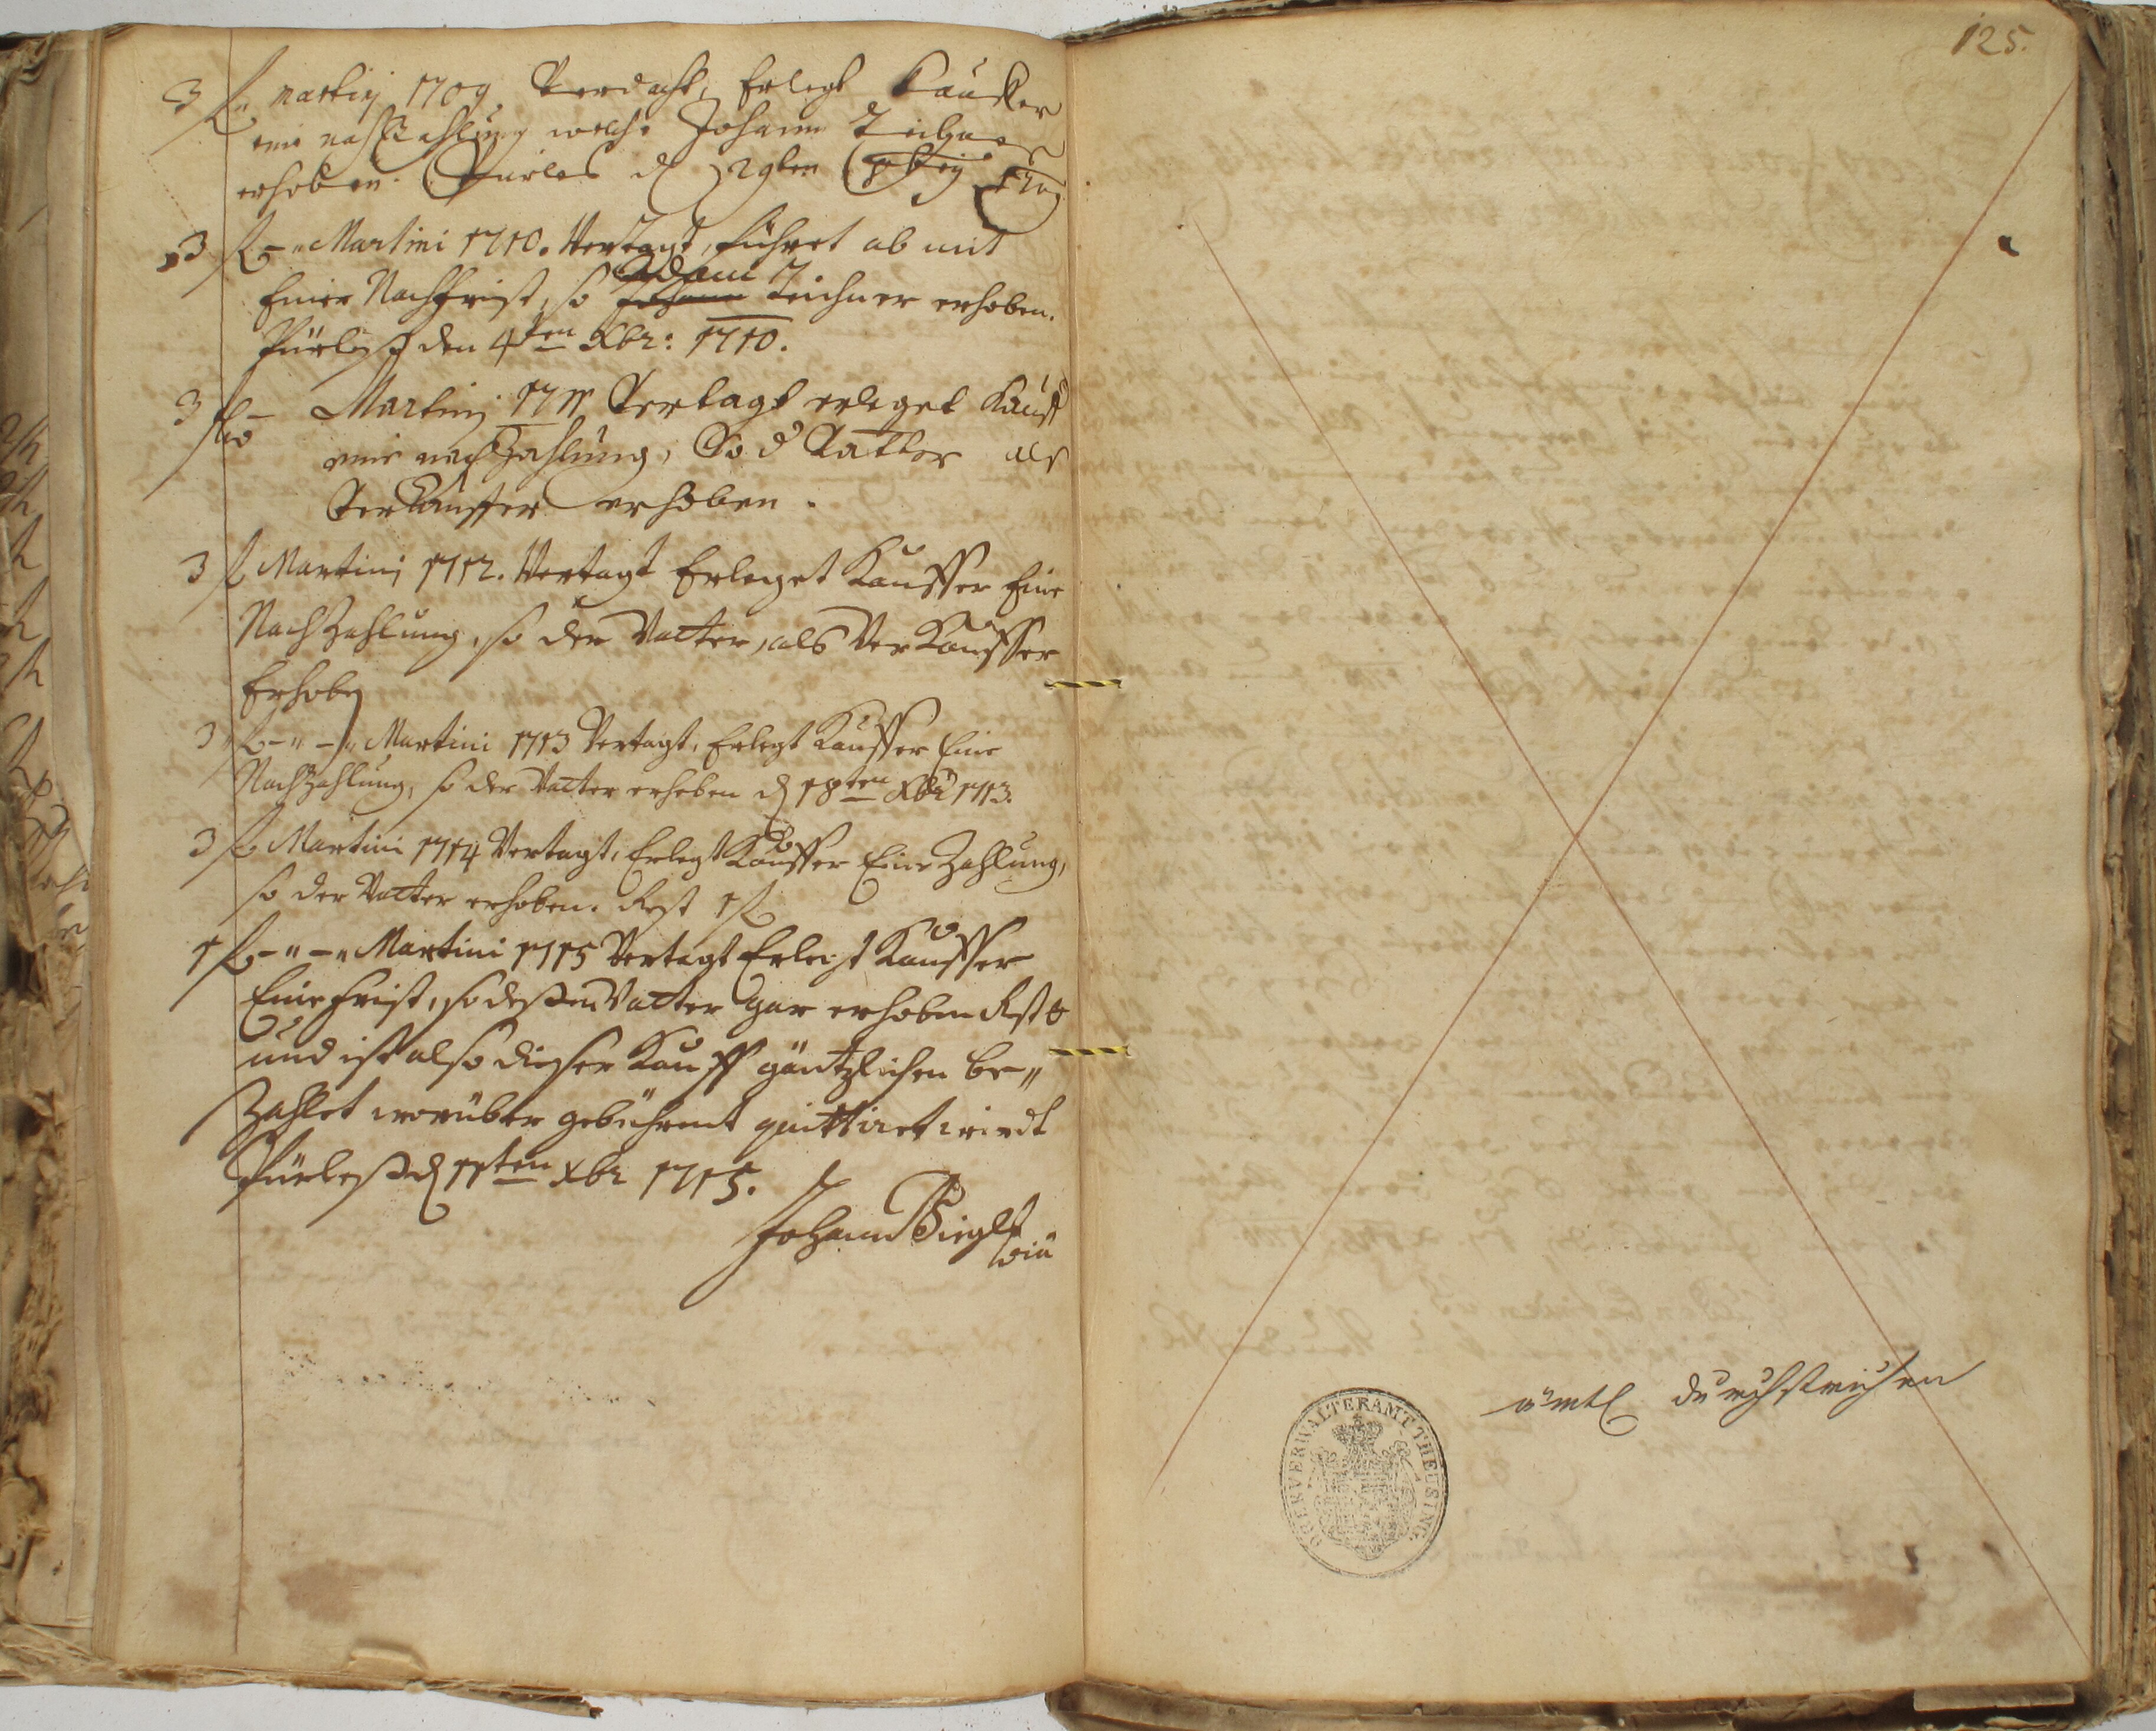 125.
3 fl. Martinj 1709 Verdacht, Erlegt Kauffer
eine nachZahlung welche Johann
erhoben. Pürles d 29ten 1709
3 fl – " Martini 1710. Vertagt, führet ab mit
Einer Nachfrist, so Johann Adam Teichner erhoben.
Pürleß den 4ten Xbr: 1710.
3 fl – Martinj 1711 Vertagt erleget Kauff
eine nachZahlung, So d Vatter als
Verkäuffer erhoben.
3 fl Martinj 1712. Vertagt Erleget Kauffer Eine
NachZahlung, so der Vatter, als VerKauffer
Erhoben
3 fl – " – " Martini 1713 Vertagt, Erlegt Kauffer Eine
NachZahlung, so der Vatter erhoben d 18ten Xbr 1713.
3 fl Martini 1714 Vertagt, Erlegt Kauffer Eine Zahlung,
so der Vatter erhoben. Rest 1 fl
1 fl – " – " Martini 1715 Vertagt Erlegt Kauffer
Eine Frist, so deßen Vatter gar erhoben Rest 0
und ist also dieser Kauff gäntzlichen be "
Zahlet worüber gebührent quittiret wirdt
Pürleß d 11ten Xbr 1715.
Johann
ämtl durchstrichen
OBERVERWALTERAMT THEUSING